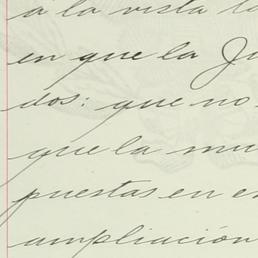 á la vista
en que la
dos: que no
que la
puestas en
ampliación